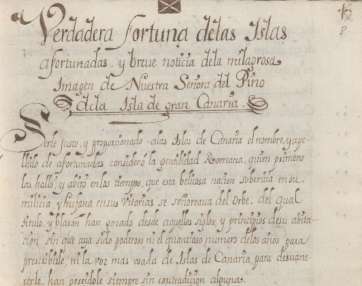 Verdadera fortuna delas Islas
afortunadas, y breue noticia dela milagrosa
Imagen de Nuestra Señora del Pino
dela Isla de gran Canaria.
justo, y proporcionado alas Islas de Canaria el nombre, y ape
llido de afortunadas considero la gentilidad Romana, quien primero
las hallo, y abitó en los tiempos, que esta belicosa nacion soberana en su
milicia, y hufana en sus Vitorias se señoreaua del Orbe, del qual
titulo, y blason han gosado desde aquellos siglos, y principios de su abita
cion, sin que aya sido poderoso ni el quantioso numero delos años para
prescribirle, ni la voz mas vsada de Islas de Canaria para desuane
serle, han poseidole siempre sin contradicion algunas.